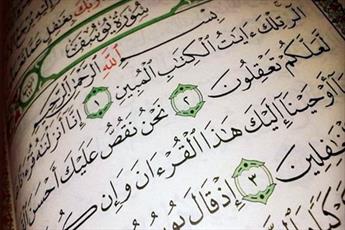 رَبُّكَ بِغَٰفِلٍ عَمَّا
سُورَةُ يُوسُفَ
بِسْمِ اللَّهِ الرَّحْمَٰنِ الرَّحِيمِ
الٓر تِلْكَ ءَايَٰتُ الْكِتَٰبِ الْمُبِينِ ١ إِنَّآ أَنزَلْنَٰهُ
لَّعَلَّكُمْ تَعْقِلُونَ ٢ نَحْنُ نَقُصُّ عَلَيْكَ أَحْسَنَ
مَآ أَوْحَيْنَآ إِلَيْكَ هَٰذَا الْقُرْءَانَ وَإِن
غَٰفِلِينَ ٣ إِذْ قَالَ